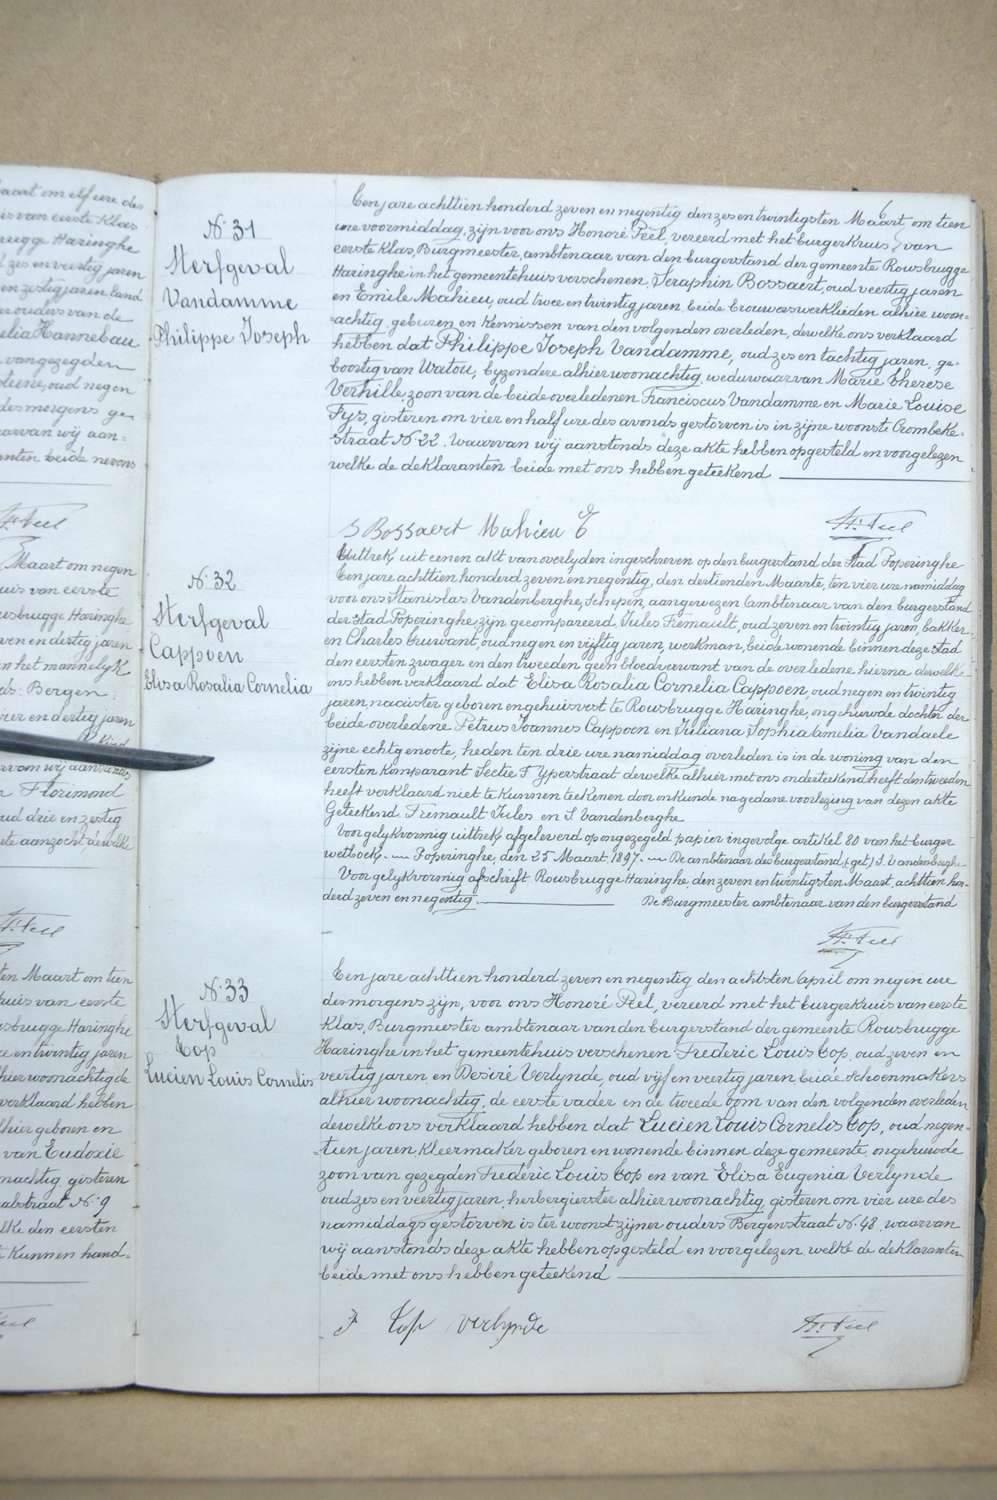 aart om elf ure des
is van eerste Klas
rugge Haringhe
zes en veertig jaren
en zestig jaren Land
er ouders van de
elia Hannebau
vangezegden
oud negen
des morgens ge
aarvan wij aan=
anten beide nevens
H. Peel
Maart om negen
uis van eerste
usbrugge Haringhe
ven en dertig jaren
n het mannelyk
Bergen
vier en dertig jaren
kind
arvan wij aanstonds
Florimond
ud drie en zestig
ete aanzocht, dewelke
H. Peel
ten Maart om tien
huis van eerste
usbrugge Haringhe
e en twintig jaren
hier woonachtig de
verklaard hebben
lhier geboren en
van Eudoxie
nachtig, gisteren
straat N. 9
lke den eersten
Kunnen hand=
N. 31
Sterfgeval
Vandamme
Philippe Joseph
Een jare achttien honderd zeven en negentig den zes en twintigsten Maart, om tien
ure voormiddag, zijn voor ons Honoré Peel, vereerd met het burgerkruis van
eerste Klas, Burgmeester, ambtenaar van den burgerstand der gemeente Rousbrugge
Haringhe in het gemeentehuis verschenen, Seraphin Bossaert, oud veertig jaren
en Emile Mahieu, oud twee en twintig jaren, beide brouwerswerklieden alhier woon=
=achtig, geburen en kennissen van den volgenden overleden, dewelke ons verklaard
hebben dat Philippe Joseph Vandamme, oud zes en tachtig jaren, ge=
boortig van Watou, byzondere alhier woonachtig, weduwaar van Marie Therese
Verhille, zoon van de beide overledenen Franciscus Vandamme en Marie Louise
Fys, gisteren om vier en half ure des avonds gestorven is in zijne woonste Crombeke=
straat N. 22. Waarvan wij aanstonds deze akte hebben opgesteld en voorgelezen
welke de deklaranten beide met ons hebben geteekend
S Bossaert Mahieu E H. Peel
N. 32
Sterfgeval
Cappoen
Elisa Rosalia Cornelia
Uittrek, uit eenen akt van overlyden ingeschreven op den burgerstand der Stad Poperinghe
Een jare achttien honderd zeven en negentig, den dertienden Maarte, ten vier ure namiddag
voor ons Stanislas Vandenberghe, Schepen, aangewezen ambtenaar van den burgerstand
der Stad Poperinghe, zijn gecompareerd, Jules Fremault, oud zeven en twintig jaren, bakker
en Charles oud negen en vijftig jaren, werkman, beide wonende binnen deze Stad
den eersten zwager en den tweeden geen bloedverwant van de overledene hierna dewelke
ons hebben verklaard dat Elisa Rosalia Cornelia Cappoen, oud negen en twintig
jaren, naaister geboren en gehuisvest te Rousbrugge Haringhe, ongehuwde dochter der
beide overledene Petrus Joannes Cappoen en Juliana Sophia Amelia Vandaele
zijne echtgenoote, heden ten drie ure namiddag overleden is in de woning van den
eersten komparant Sectie F Yperstraat dewelke alhier met ons onderteekend heeft den tweeden
heeft verklaard niet te kunnen teekenen door onkunde na gedane voorlezing van dezen akte
Geteekend. Fremault Jules en S. Vandenberghe
Voor gelykvormig uittrek, afgeleverd op ongezegeld papier ingevolge artikel 80 van het burger
wetboek. — Poperinghe, den 25 Maart 1897. — De ambtenaar des burgerstand, (get) S. Vandenberghe
Voor gelykvormig afschrift Rousbrugge-Haringhe, den zeven en twintigsten Maart, achttien hon-
derd zeven en negentig. De Burgmeester ambtenaar van den burgerstand
H. Peel
N. 33
Sterfgeval
Cop
Lucien Louis Cornelis
Een jare achttien honderd zeven en negentig den achtsten April om negen ure
des morgens zijn, voor ons Honoré Peel, vereerd met het burgerkruis van eerste
Klas, Burgmeester ambtenaar van den burgerstand der gemeente Rousbrugge
Haringhe in het gemeentehuis verschenen Frederic Louis Cop, oud zeven en
veertig jaren en Desiré Verlynde, oud vijf en veertig jaren beide schoenmakers
alhier woonachtig, de eerste vader en de tweede oom van den volgenden overleden
dewelke ons verklaard hebben dat Lucien Louis Cornelis Cop, oud negen=
=tien jaren Kleermaker geboren en wonende binnen deze gemeente, ongehuwde
zoon van gezegden Frederic Louis Cop en van Elisa Eugenia Verlynde
oud zes en veertig jaren, herbergierster alhier woonachtig, gisteren om vier ure des
namiddags gestorven is ter woonst zijner ouders Bergenstraat N. 48 waarvan
wij aanstonds deze akte hebben opgesteld en voorgelezen welke de deklaranten
beide met ons hebben geteekend
F Cop Verlynde H. Peel